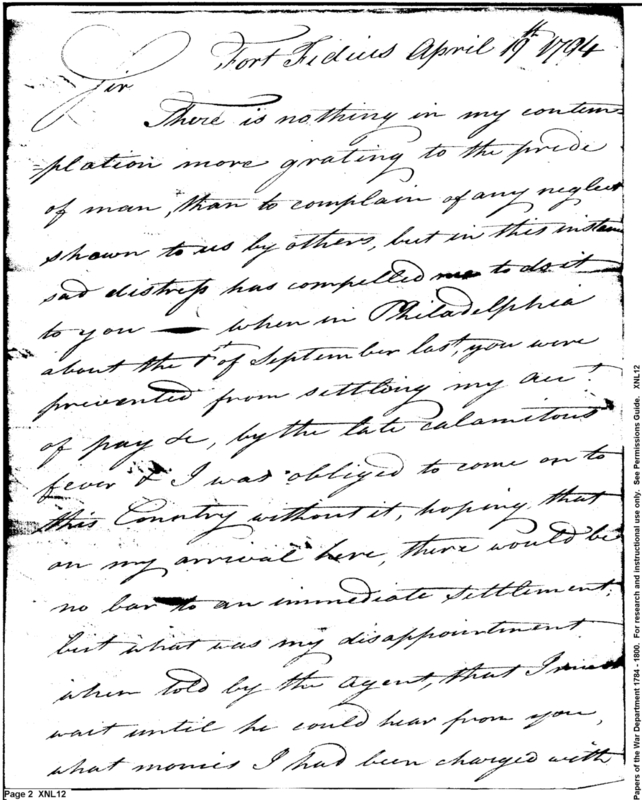 Fort Fidius April 19th 1794
Sir
There is nothing in my contem=
=plation more grating to the pride
of man, than to complain of any neglect
shown to us by others, but in this instan
sad distress has compelled me to do it
to you — when in Philadelphia
about the 1st of September last, you were
prevented from settling my acct.
of pay &c, by the late calamitous
fever & I was obliged to come on to
this Country without it, hoping that
on my arrival here, there would be
no bar to an immediate settlement,
but what was my disappointment
when told by the agent, that I must
wait until he could hear from you,
what monies I had been charged with
Page 2 XNL12
Papers of the War Department 1784 - 1800. For research and instructional use only. See Permissions Guide. XNL12